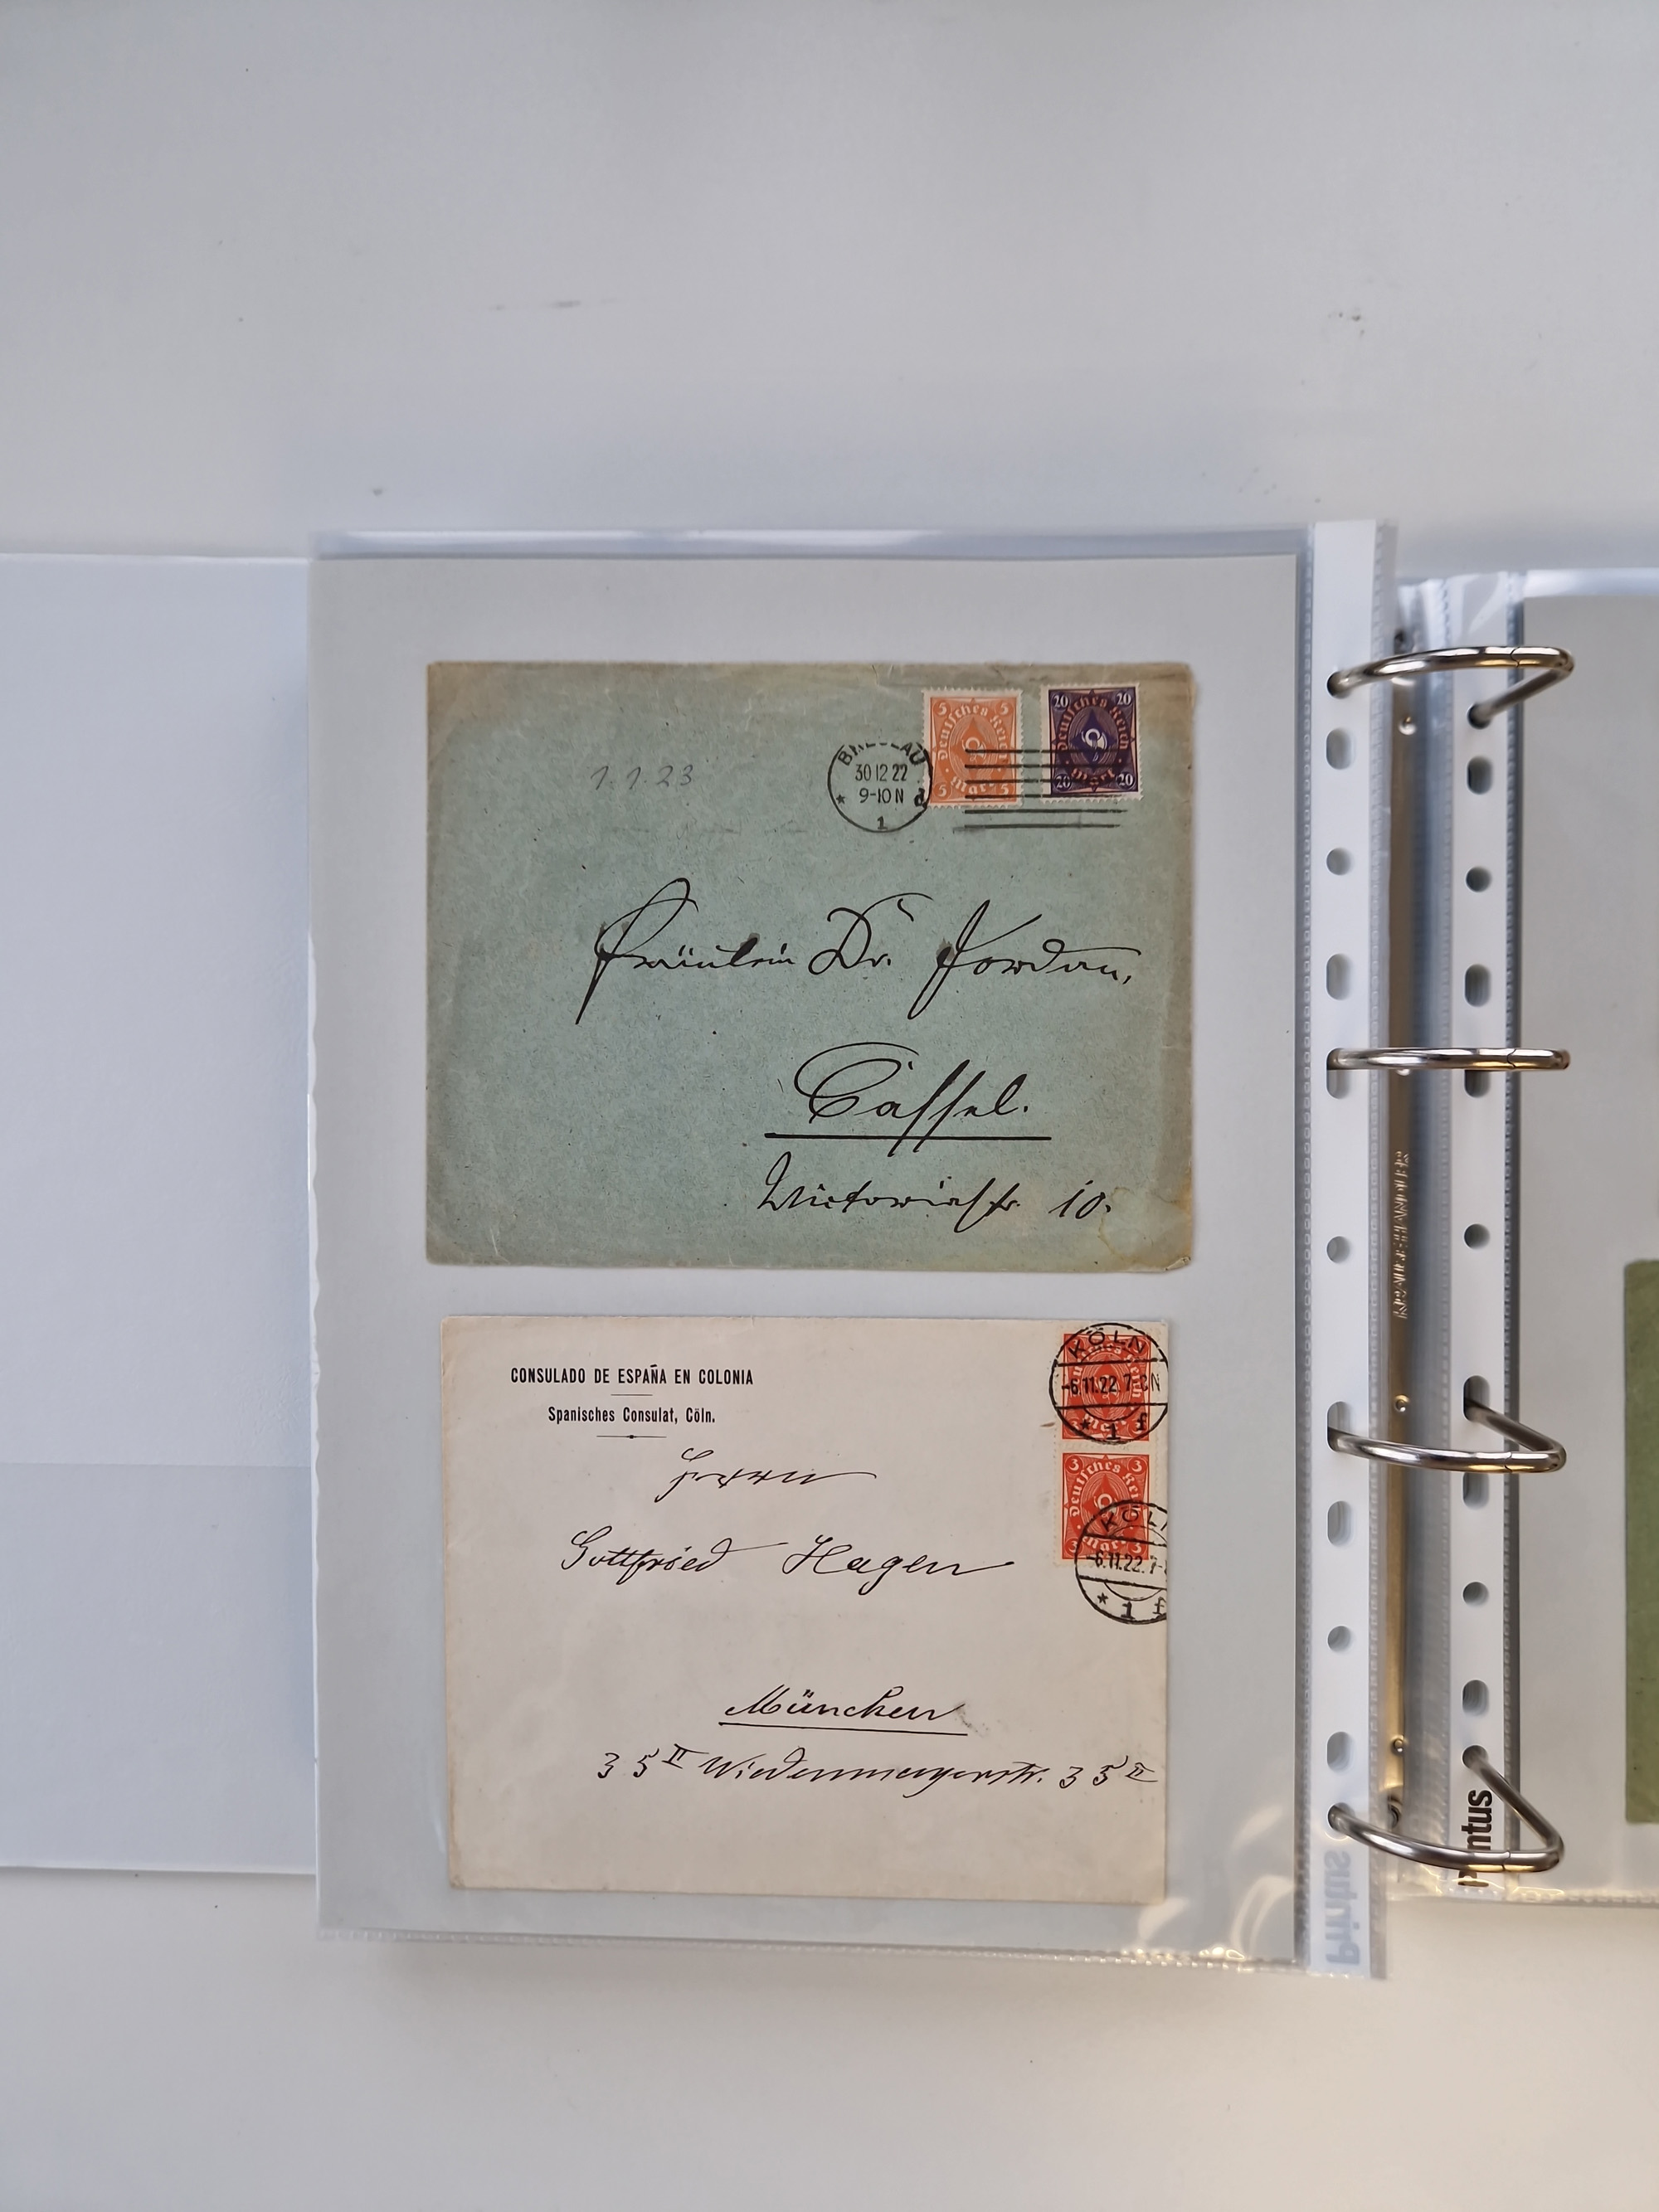 5 5
Deutsches Reich
Mark
5 5
20 20
Deutsches Reich
Mark
20 20
BRESLAU
30 12 22
9-10 N
* 1 d
1.1.23
Fräulein Dr. Jordan,
Cassel.
Victoriastr. 10.
CONSULADO DE ESPAÑA EN COLONIA
Spanisches Consulat, Cöln.
KÖLN
-6.11.22.7-8N
* 1 f
3 3
Deutsches Rei
Mark
3 3
KÖLN
-6.11.22.7-8
* 1 f
Herrn
Gottfried Hagen
München
35 II Wiedenmayerstr. 35 II
KRAUSE-HANDLER
Printus
Printus